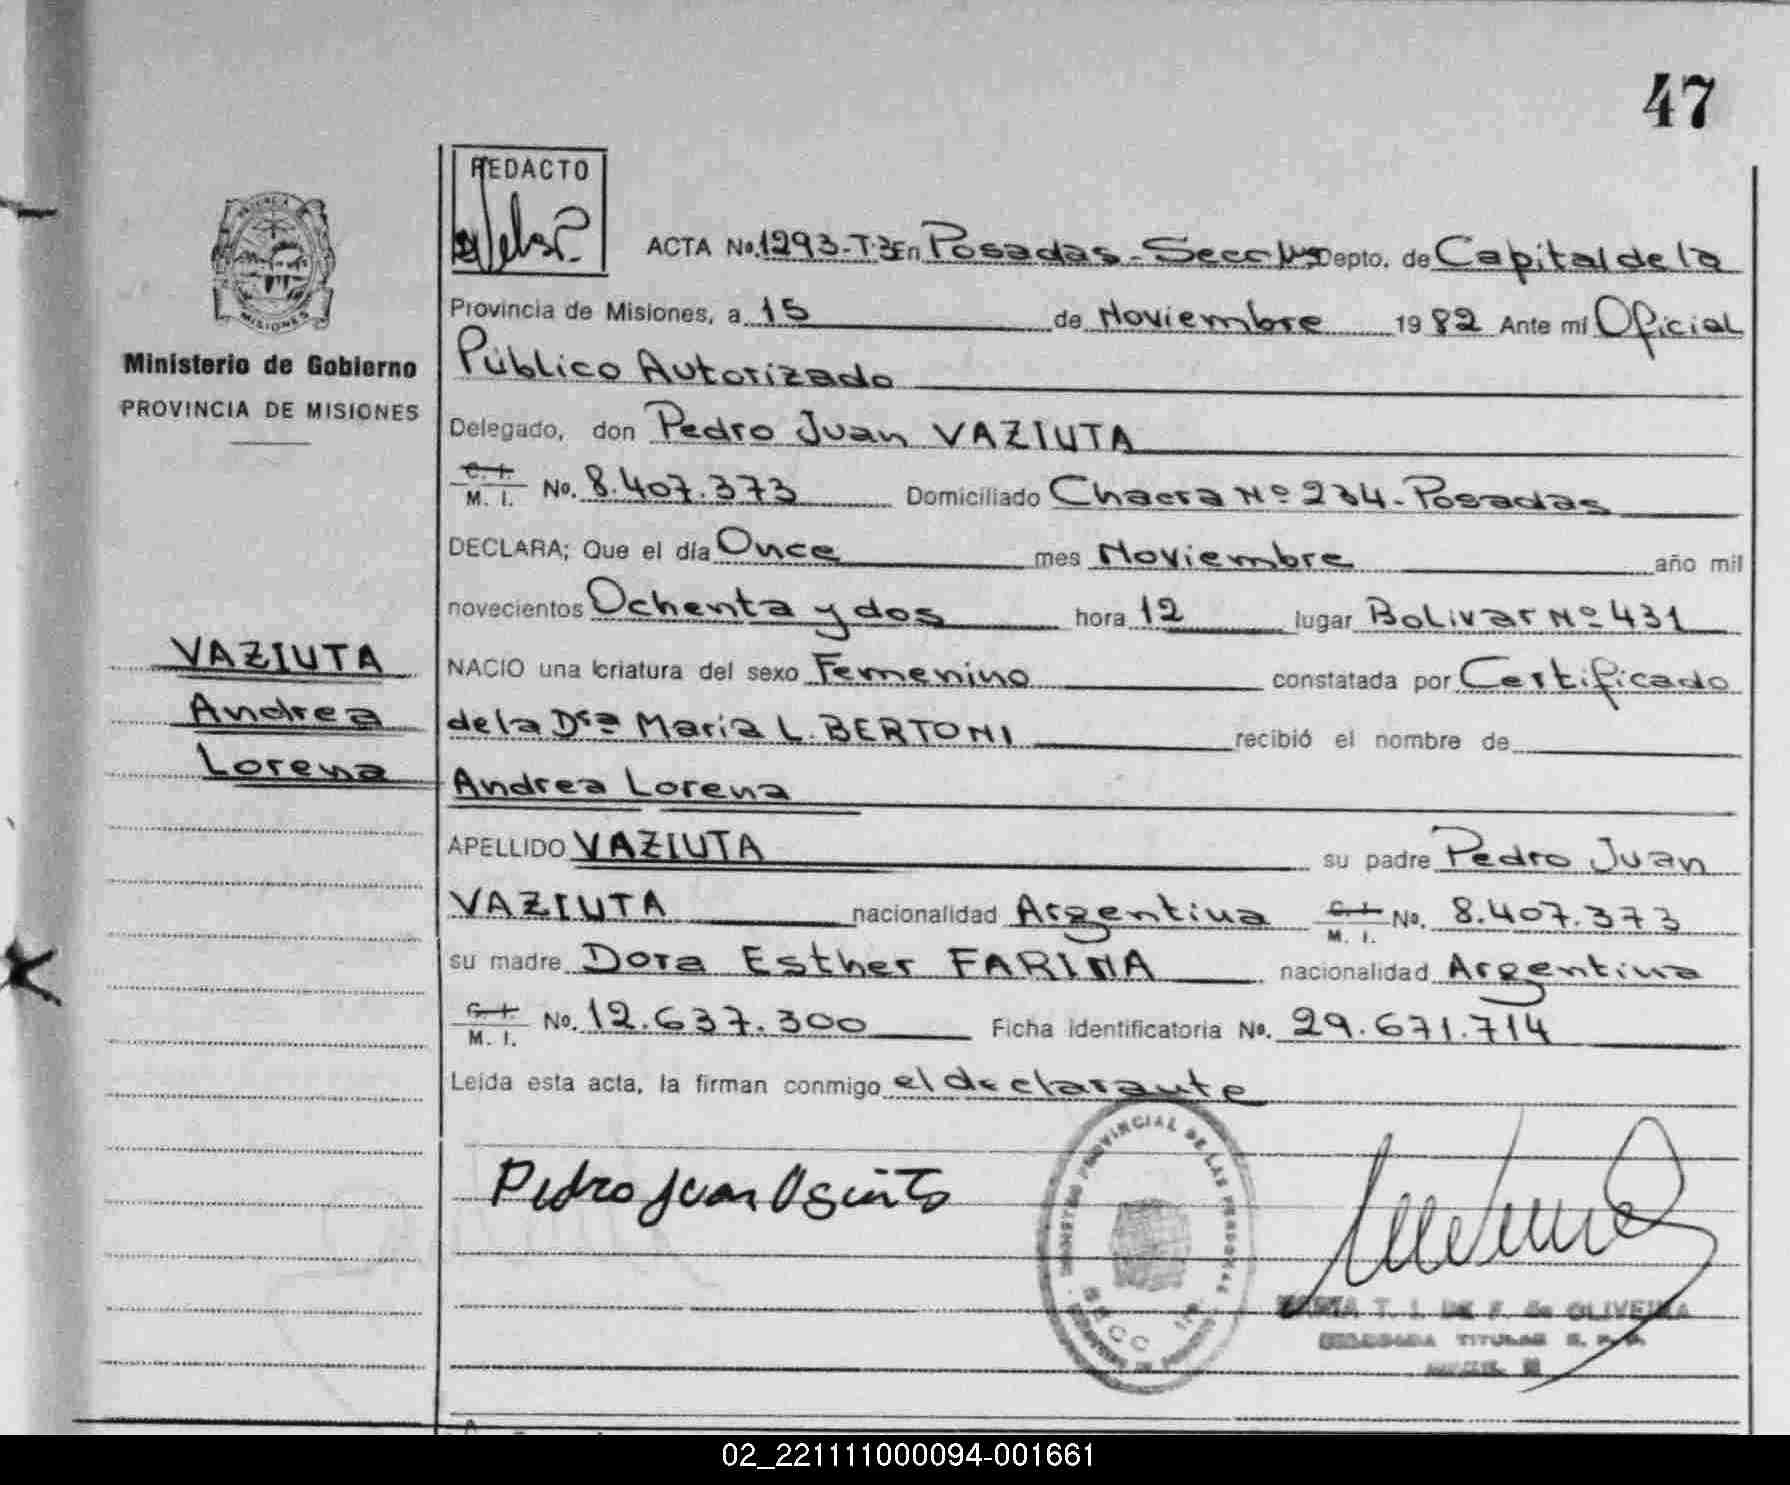 47
REDACTO
ACTA No. 1293-T.3 En Posadas - Secc Depto. de Capital de la
Provincia de Misiones, a 15 de Noviembre 1982 Ante mí Oficial
Público Autorizado
Delegado, don Pedro Juan VAZIUTA
C. I. M. I. No. 8.407.373 Domiciliado Chacra Nº 234 - Posadas
DECLARA; Que el día Once mes Noviembre año mil
novecientos Ochenta y dos hora 12 lugar Bolivar Nº 431
NACIO una criatura del sexo Femenino constatada por Certificado
de la Dra María L. BERTONI recibió el nombre de
Andrea Lorena
APELLIDO VAZIUTA su padre Pedro Juan
VAZIUTA nacionalidad Argentina C. I. M. I. No. 8.407.373
su madre Dora Esther FARINA nacionalidad Argentina
C. I. M. I. No. 12.637.300 Ficha identificatoria No. 29.671.714
Leída esta acta, la firman conmigo el declarante
Pedro Juan
MISIONES
Ministerio de Gobierno
PROVINCIA DE MISIONES
VAZIUTA
Andrea
Lorena
PROVINCIAL DE LAS PERSONAS
SECC
T. I. DE F. de OLIVEIRA
TITULAR
02_221111000094-001661